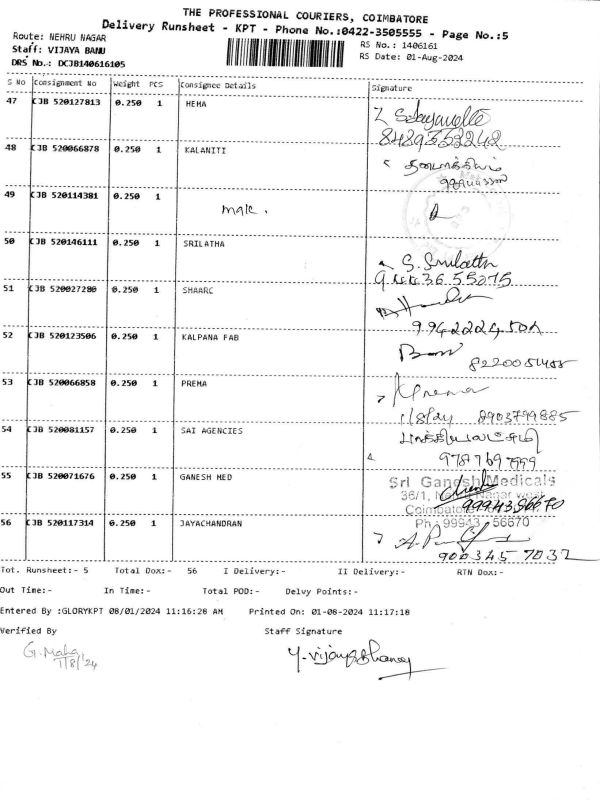 THE PROFESSIONAL COURIERS, COIMBATORE
Delivery Runsheet - KPT - Phone No.:0422-3505555 - Page No.:5
Route: NEHRU NAGAR
RS No.: 1406161
Staff: VIJAYA BANU
RS Date: 01-Aug-2024
DRS No.: DCJB140616105
S No Consignment No Weight PCS Consignee Details Signature
47 CJB 520127813 0.250 1 HEMA
8489352242
48 CJB 520066878 0.250 1 KALANITI
49 CJB 520114381 0.250 1
male.
50 CJB 520146111 0.250 1 SRILATHA
S. Srilatha
51 CJB 520027280 0.250 1 SHAARC
52 CJB 520123506 0.250 1 KALPANA FAB
53 CJB 520066858 0.250 1 PREMA
Prema
1/8/24 8903799885
54 CJB 520081157 0.250 1 SAI AGENCIES
55 CJB 520071676 0.250 1 GANESH MED
Sri Ganesh Medicals
36/1, Nehru Nagar west
Coimbatore
9994356670
Ph : 99943 56670
56 CJB 520117314 0.250 1 JAYACHANDRAN
9023457032
Tot. Runsheet:- 5 Total Dox:- 56 I Delivery:- II Delivery:- RTN Dox:-
Out Time:- In Time:- Total POD:- Delvy Points:-
Entered By :GLORYKPT 08/01/2024 11:16:28 AM Printed On: 01-08-2024 11:17:18
Verified By Staff Signature
G. Maha
1/8/24
Y. Vijaya Bhanay